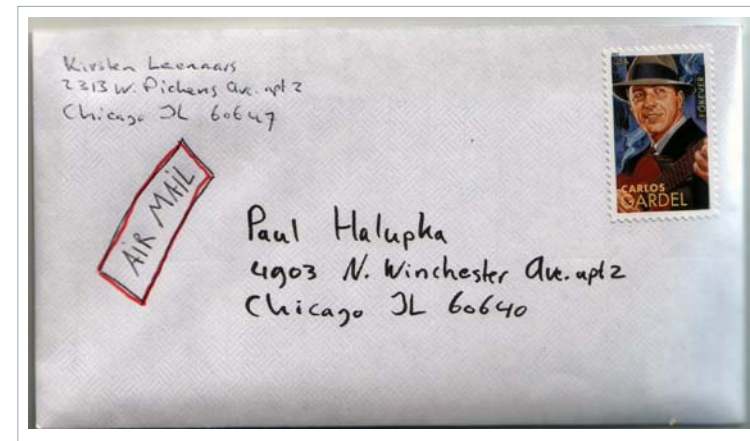 Kirsten Leenaars
2313 W. Pickens Ave. apt 2
Chicago IL 60647
FOREVER
CARLOS
GARDEL
AIR MAIL
Paul Halupka
4903 N. Winchester Ave. apt 2
Chicago IL 60640